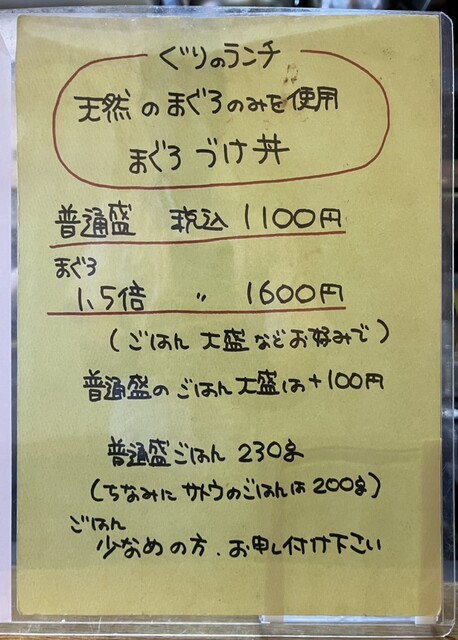 ぐりのランチ
天然のまぐろのみを使用
まぐろ づけ丼
普通盛 税込 1100円
まぐろ
1,5倍 〃 1600円
(ごはん 大盛などお好みで)
普通盛のごはん大盛は+100円
普通盛ごはん 230g
(ちなみに サトウのごはんは 200g)
ごはん
少なめの方、お申し付け下さい